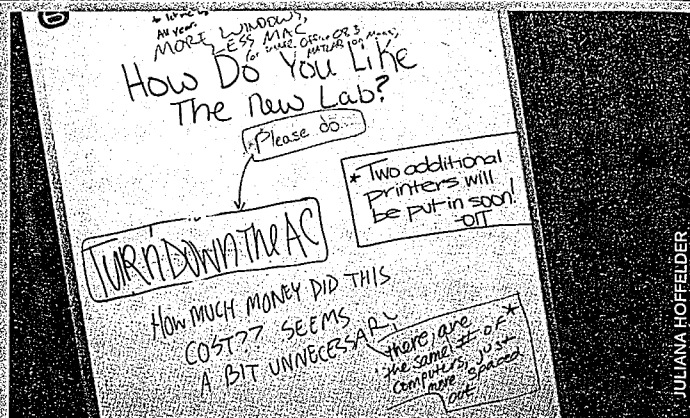 All year.
MORE WINDOWS,
LESS MAC
How Do You Like
The new Lab?
*Please do...
TURN DOWN THE AC
* Two additional
printers will
be put in soon!
-OIT
HOW MUCH MONEY DID THIS
COST?? SEEMS
A BIT UNNECESSARY
there are *
the same # of
computers, just
more spaced
out
JULIANA HOFFELDER